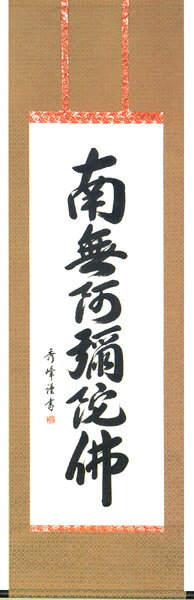 南無阿彌陀佛
秀峰謹書